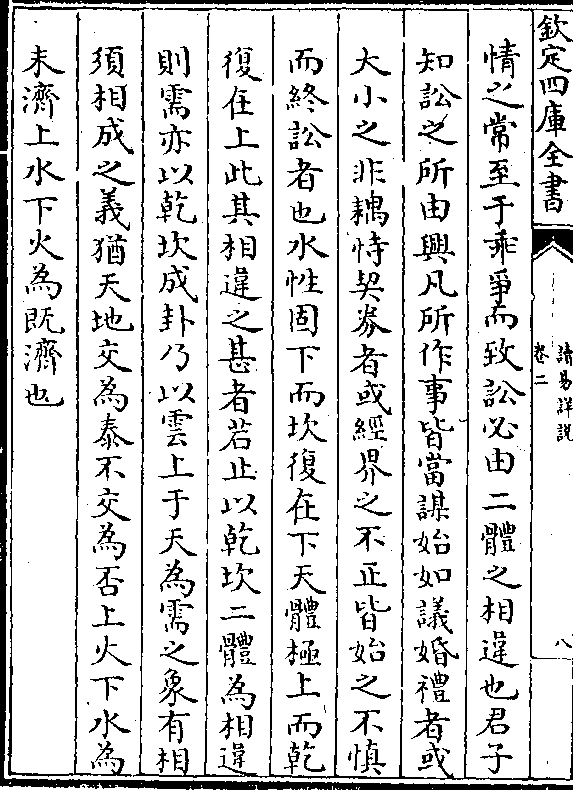 欽定四庫全書
讀易詳說
卷二
八
情之常至于乖爭而致訟必由二體之相違也君子
知訟之所由興凡所作事皆當謀始如議婚禮者或
大小之非耦恃契劵者或經界之不正皆始之不慎
而終訟者也水性固下而坎復在下天體極上而乾
復在上此其相違之甚者若止以乾坎二體為相違
則需亦以乾坎成卦乃以雲上于天為需之象有相
須相成之義猶天地交為泰不交為否上火下水為
未濟上水下火為既濟也